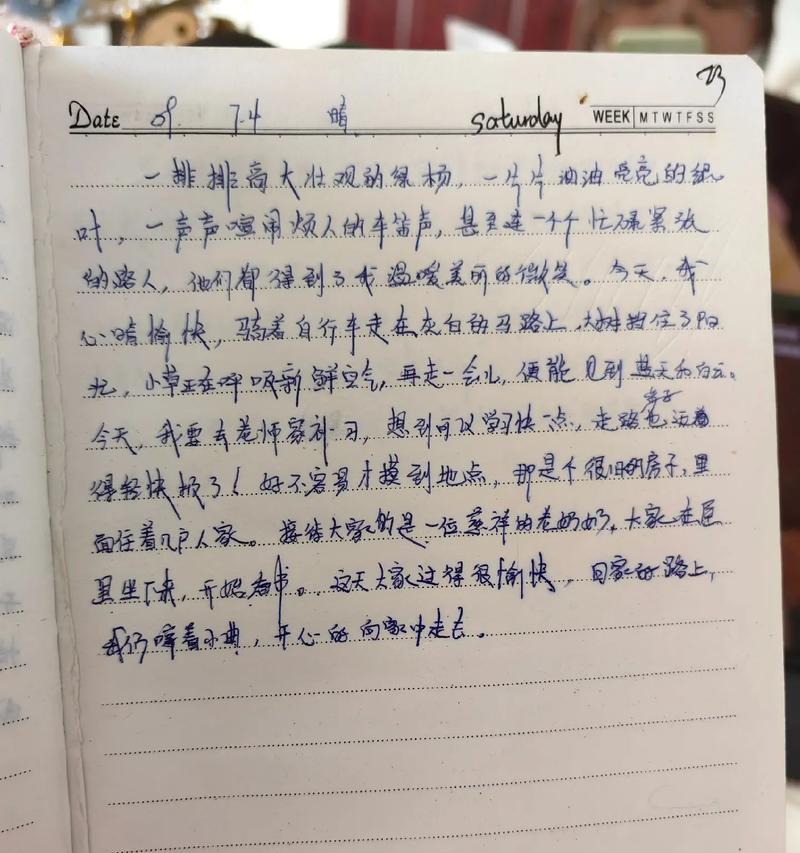 23
Date 09. 7.4 晴 saturday WEEK M T W T F S S
一排排高大壮观的绿杨，一片片油油亮亮的绿
叶，一声声喧闹烦人的车笛声，甚至连一个个忙碌紧张
的路人，他们都得到了我温暖美丽的微笑。今天，我
心晴愉快，骑着自行车走在灰白的马路上，大树挡住了阳
光，小草正在呼吸新鲜空气，再走一会儿，便能见到蓝天和白云。
今天，我要去老师家补习，想到可以学习快一点，走路
得轻快极了！好不容易才摸到地点，那是个很旧的房子，里
面住着几户人家。接待大家的是一位慈祥的老奶奶，大家在屋
里坐下来，开始看书。这天大家过得很愉快，回家的路上，
我们哼着小曲，开心的向家中走去。